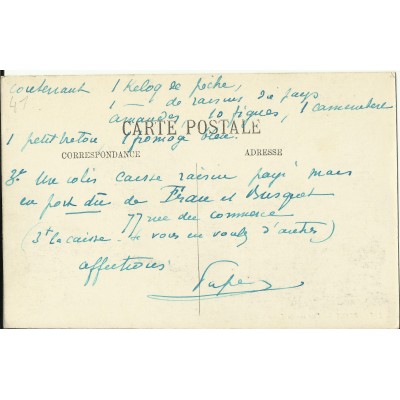 contenant 1 Kelog de pêche,
41 1 — de raisins du pays
amandes, 10 figues, 1 camembert
CARTE POSTALE
1 petit breton 1 fromage bleu.
CORRESPONDANCE ADRESSE
3º Un colis caisse raisin payé mais
en port dû de Frau et Busquet
77 rue du commerce
(3f la caisse si vous en voulez d'autres)
affections
Papa